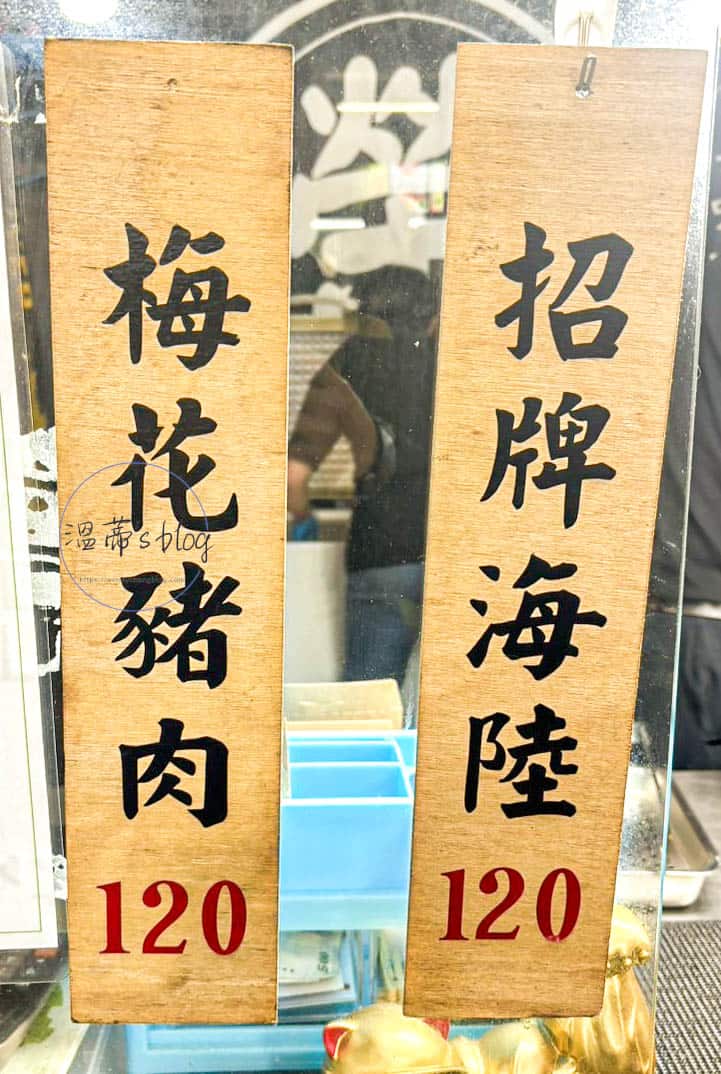 招牌海陸
120
梅花豬肉
120
溫蒂's blog